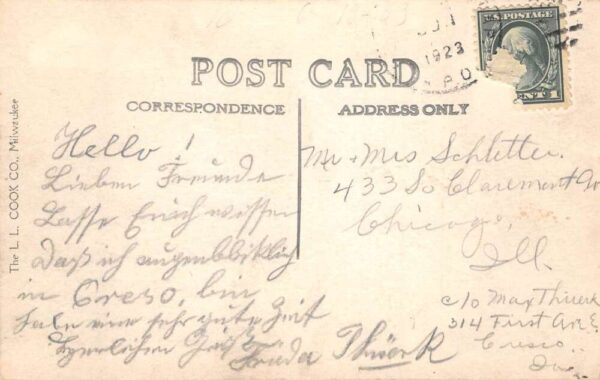 JUN
1923
R.P.O.
U.S. POSTAGE
CENTS 1
POST CARD
CORRESPONDENCE
ADDRESS ONLY
The L. L. COOK CO., Milwaukee
Hello!
Lieben Freunde
Lasse Euch wissen
Daß ich augenbliklich
in Creso, bin
habe eine sehr gute Zeit
herzlichen Gruß
Frieda Thierk
Mr & Mrs Schletter.
433 So Claremont Av
Chicago,
Ill.
c/o Max Thierk
314 First Av E
Cresco